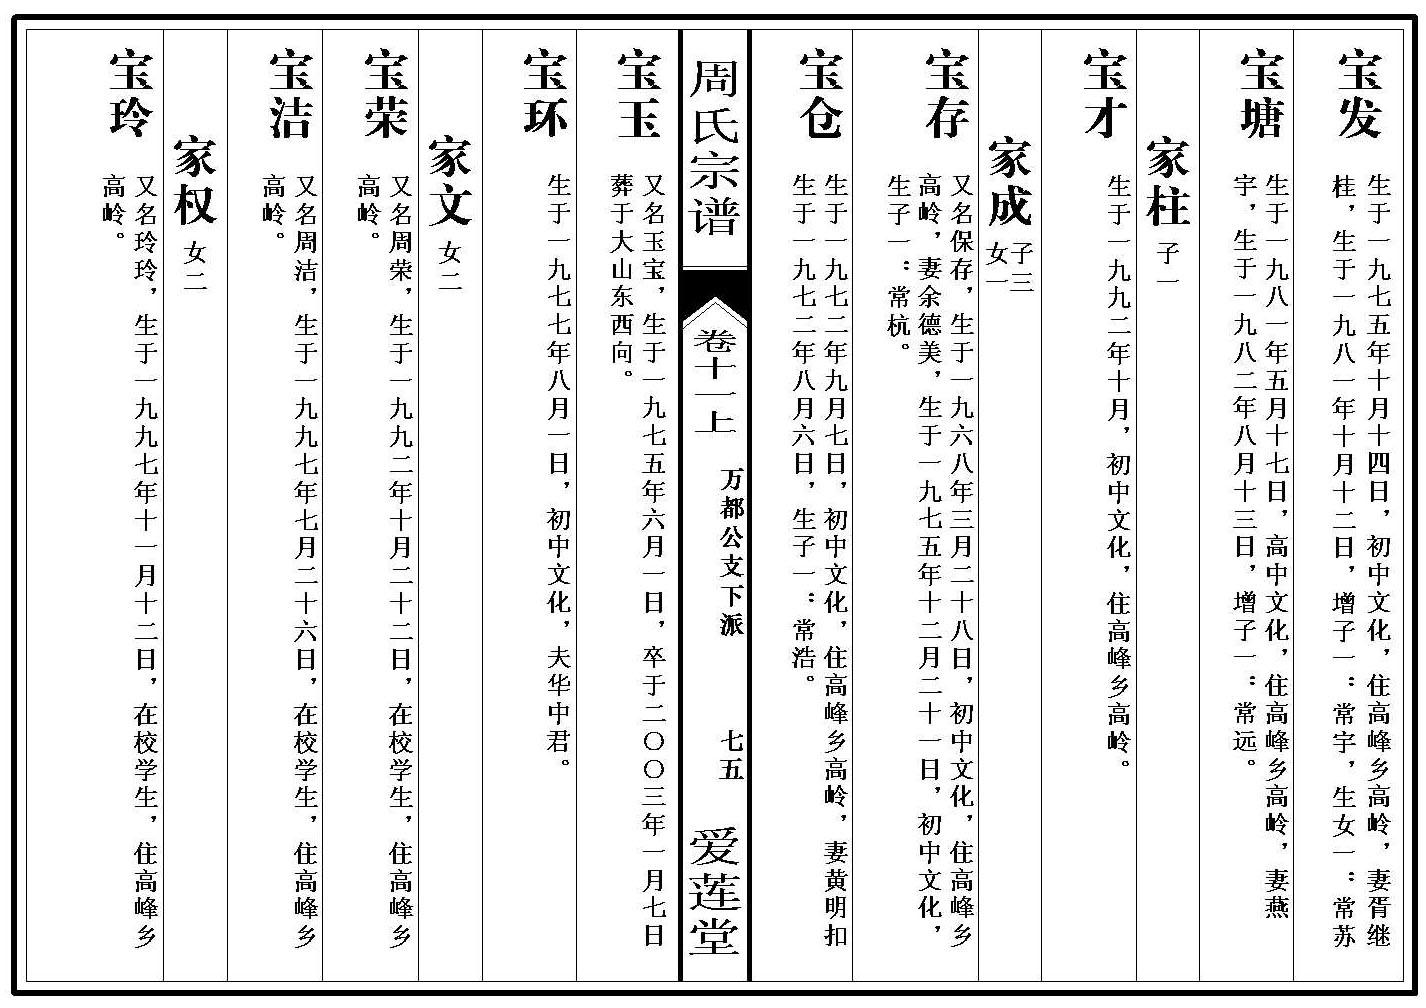 宝发
生于一九七五年十月十四日，初中文化，住高峰乡高岭，妻胥继
桂，生于一九八一年十月十二日，增子一：常宇，生女一：常苏
宝塘
生于一九八一年五月十七日，高中文化，住高峰乡高岭，妻燕
宇，生于一九八二年八月十三日，增子一：常远。
家柱
子一
宝才
生于一九九二年十月，初中文化，住高峰乡高岭。
家成
子三
女一
宝存
又名保存，生于一九六八年三月二十八日，初中文化，住高峰乡
高岭，妻余德美，生于一九七五年十二月二十一日，初中文化，
生子一：常杭。
宝仓
生于一九七二年九月七日，初中文化，住高峰乡高岭，妻黄明扣
生于一九七二年八月六日，生子一：常浩。
周氏宗谱
卷十一上
万都公支下派
七五
爱莲堂
宝玉
又名玉宝，生于一九七五年六月一日，卒于二〇〇三年一月七日
葬于大山东西向。
宝环
生于一九七七年八月一日，初中文化，夫华中君。
家文
女二
宝荣
又名周荣，生于一九九二年十月二十二日，在校学生，住高峰乡
高岭。
宝洁
又名周洁，生于一九九七年七月二十六日，在校学生，住高峰乡
高岭。
家权
女二
宝玲
又名玲玲，生于一九九七年十一月十二日，在校学生，住高峰乡
高岭。